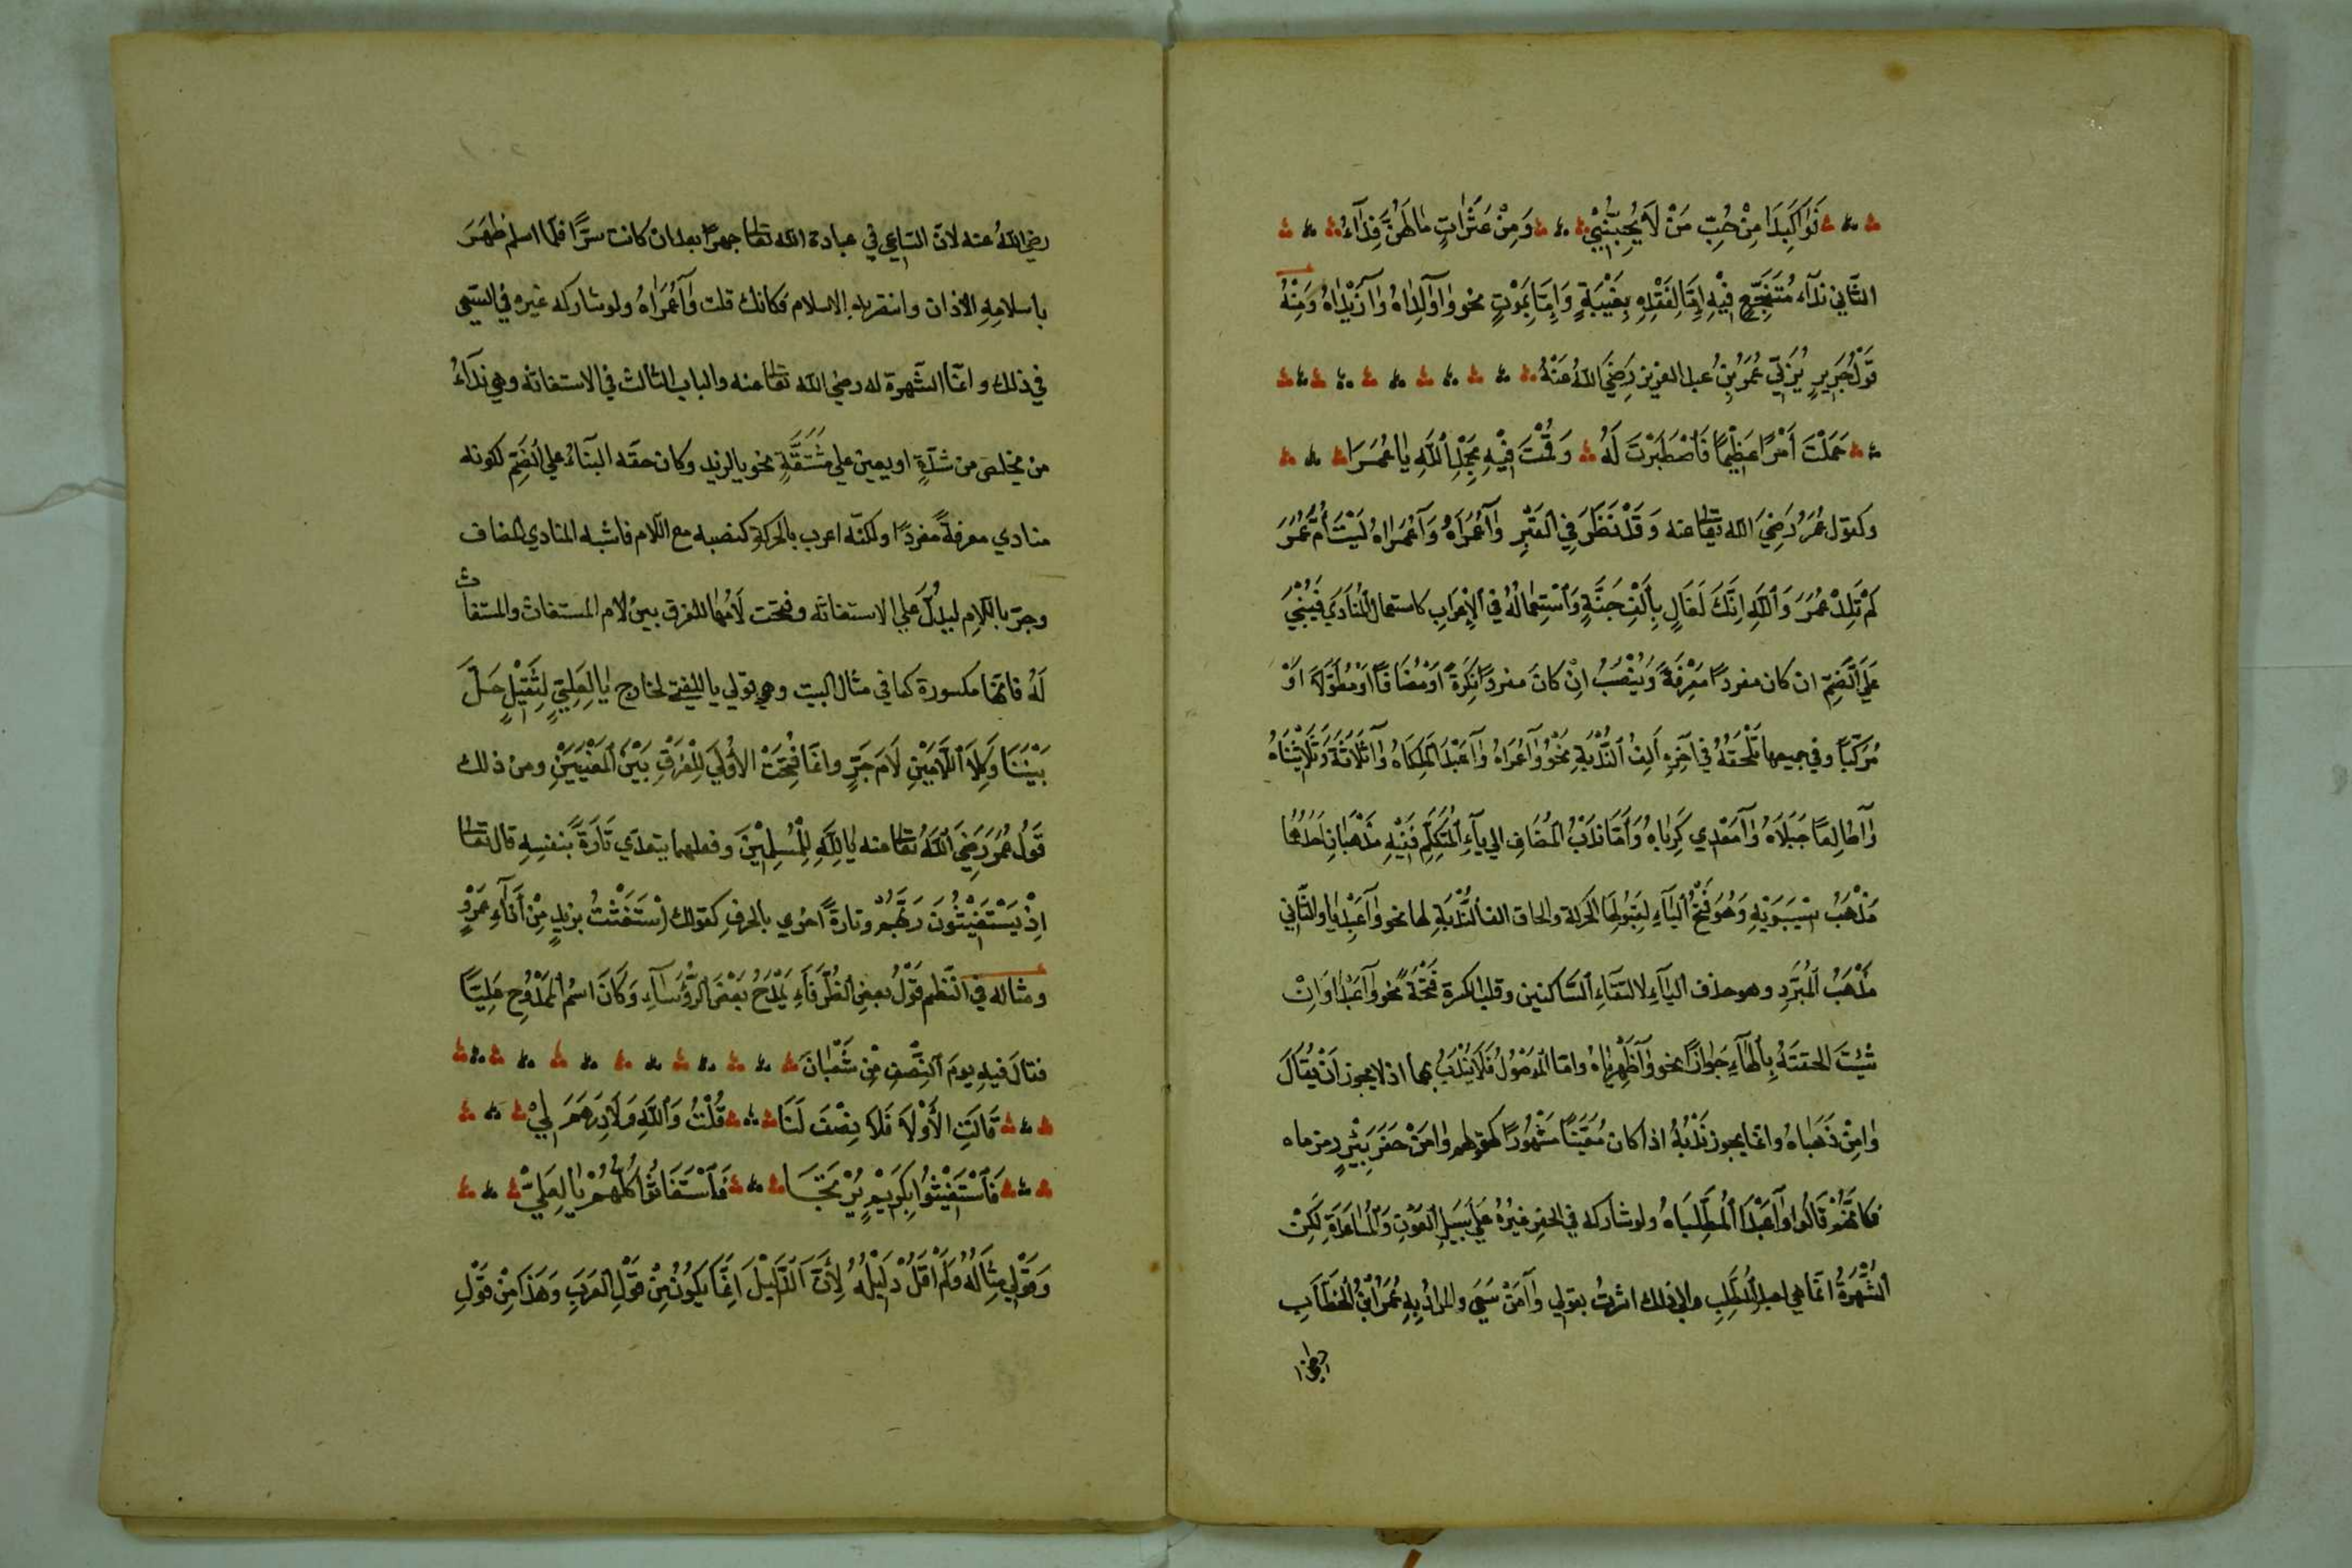 فَوَا كَبِدَا مِنْ حُبِّ مَنْ لَا يُحِبُّنِيْ وَمِنْ عَثَرَاتٍ مَا لَهُنَّ فِدَآءُ
الثَّاني ندآء مُتَفَجَّعٍ فِيْهِ اِمَّا لِفَقْدِهِ بِغَيْبَةٍ وَاِمَّا بِمَوْتٍ نحو وَاوَالِدَاهُ وَازَيْدَاهُ وَمِنْهُ
قَوْلُ جَرِيرٍ يَرْثِي عُمَرَ بْنَ عبد العزيز رَضِيَ اللّٰهُ عَنْهُ
حَمَلْتَ اَمْرًا عَظِيْمًا فَاصْطَبَرْتَ لَهُ وَقُمْتَ فِيْهِ بِحَقِّ اللّٰهِ يَا عُمَرَا
وكقول عُمَرَ رَضِيَ الله تعالى عنه وَقَدْ نَظَرَ فِي الْقَبْرِ وَاعُمَرَاهُ وَاعُمَرَاهُ لَيْتَ اُمَّ عُمَرَ
لَمْ تَلِدْ عُمَرَ وَاللّٰهِ اِنَّكَ بِأَلِفْ وَاسْتِعْمَالُهُ فِي الْإِعْرَابِ كاستعمال الْمُنَادَى فَيُبْنَى
عَلَى الضَّمِّ ان كان مفردًا مَعْرِفَةً وَيُنْصَبُ اِنْ كَانَ مفردًا نَكِرَةً اَوْ مُضَافًا اَوْ مُطَوَّلًا اَوْ
مُرَكَّبًا وفي جميعها تَلْحَقُهُ في آخِرِهِ أَلِفُ النُّدْبَةِ نَحْوُ وَاعُمَرَاهُ وَاعَبْدَ الْمَلِكَاهُ وَاثَلَاثَةً وَثَلَاثِيْنَاهُ
وَاطَالِعًا جَبَلَاهُ وَامَعْدِي كَرِبَاهُ وَأَمَّا نَدْبُ الْمُضَافِ الى يآءِ الْمُتَكَلِّمِ فَفِيْهِ مَذْهَبَانِ اَحَدُهُمَا
مَذْهَبُ سِيْبَوَيْهِ وَهُوَ فَتْحُ الْيَآءِ لِقَبُولِهَا الْحَرَكَةَ والحاق الف النُّدْبَةِ لها نحو وَاعَبْدِيَا والثَّاني
مَذْهَبُ الْمُبَرِّدِ وهو حذف اليآءِ لالتقآءِ السَّاكنين وقلب الكسرة فَتْحَةً نحو وَاعَبْدَا وَاِنْ
شِئْتَ الحقتَهُ بِالْهَآءِ جَوَازًا نحو وَاظَهْرِيَاهُ وامّا الْمَوْصُولُ فَلَا يُنْدَبُ بها اذ لا يجوز اَنْ يُقَالَ
وَامَنْ ذَهَبَاهُ وانما يجوز نَدْبُهُ اذا كان مُعَيَّنًا مَشْهُورًا كقولهم وَامَنْ حَفَرَ بِئْرِ زمزماه
فَكَانَّهُمْ قَالُوا وَاعَبْدَ الْمُطَّلِبَاهُ ولو شاركه في الحفرِ غيرُهُ عَلَى سَبِيلِ الْعَوْنِ وَالْمُسَاعَدَةِ لٰكِنْ
الشُّهْرَةُ انّما هي لعبد الْمُطَّلِبِ والى ذلك اشرتُ بقولي وَامَنْ سَمَى والمرادُ بِهِ عُمَرُ ابْنُ الْخَطَّابِ
رضي اللّٰهُ عنه لانّ السّاعي في عبادة الله تعالى جهرًا بعد ان كانت سرًّا فلمّا اسلم ظهَرَ
باسلامِهِ الاذان وانتصر به الاسلام فكانك قلت وَاعُمَرَاهُ ولو شاركه غيره في السّعي
في ذلك وانّما الشّهرة له رضي الله تعالى عنه والباب الثالث في الاستغاثه وهي نِدَآءُ
من يخلص من شدّةٍ او يعين على مَشَقَّةٍ نحو يا لزيد وكان حقّه البنآءُ على الضّمِّ لكونه
منادي معرفةً مفردًا ولكنّه اعرب بالحركة كنصبه مع اللّام فاشبه المنادي المضاف
وجرّ باللّام ليدُلَّ عَلى الاستغاثه وفتحت لَامُهَا للفرق بين لام المستغاث والمستغاث
لَهُ فانّها مكسورة كما في مثال البيت وهو قولي يا لَلِفتى لخارج يا لَعَلِيٍّ لِثَقِيْلٍ حَلَّ
بَيْنَنَا وَكِلَا اللَّامَيْنِ لَامَ جَرٍّ وانّمَا فُتِحَتْ الأُوْلَى لِلْفَرْقِ بَيْنَ الْمَعْنَيَيْنِ ومن ذلك
قَوْلُ عُمَرَ رَضِيَ اللّٰهُ تعالى عنه يَا لَلّٰهِ لِلْمُسْلِمِيْنَ وفعلهما يتعدّي تَارَةً بنفسِهِ قال تعالى
اِذْ يَسْتَغِيْثُونَ رَبَّهُمْ وتارةً اخري بالحرف كقولك اِسْتَغَثْتُ بزيدٍ مِنْ عَمْرٍو
ومثاله في النَّظم قَوْلُ بعضِ الظُّرَفَآءِ يَمْدَحُ بَعْضَ الرُّؤَسَآءِ وَكَانَ اسْمُ الْمَمْدُوحِ عَلِيًّا
فقالَ فيهِ يومَ النِّصْفِ مِنْ شَعْبَانَ
قَالَتِ الأَوْلَادُ فَلَا نِصْفَ لَنَا قُلْتُ وَاللّٰهِ وَلَا دِرْهَمَ لِيْ
فَاسْتَغِيْثُوا بِكَرِيْمٍ يُرْتَجَا فَاسْتَغَاثُوا كُلُّهُمْ يَا لَعَلِيْ
وَقَوْلِي مِثَالُهُ وَلَمْ اَقُلْ دَلِيْلُهُ لِأَنَّ الدَّلِيْلَ اِنَّمَا يَكُوْنُ مِنْ قَوْلِ الْعَرَبِ وَهَذَا مِنْ قَوْلِ